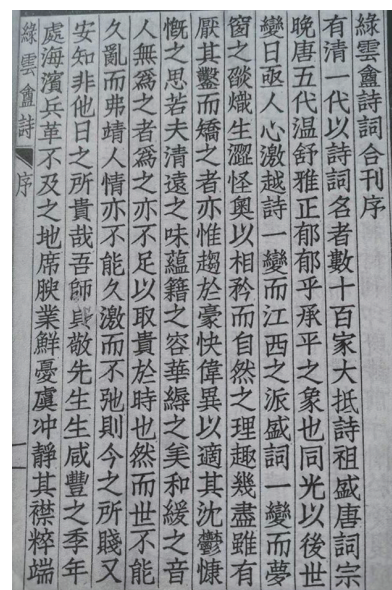 綠雲盦詩詞合刊序
有清一代以詩詞名者數十百家大抵詩祖盛唐詞宗
晚唐五代温舒雅正郁郁乎承平之象也同光以後世
變日亟人心激越詩一變而江西之派盛詞一變而夢
窗之燄熾生澀怪奧以相矜而自然之理趣幾盡雖有
厭其鑿而矯之者亦惟趨於豪快偉異以適其沈鬱慷
慨之思若夫清遠之味蘊籍之容華縟之美和緩之音
人無爲之者爲之亦不足以取貴於時也然而世不能
久亂而弗靖人情亦不能久激而不弛則今之所賤又
安知非他日之所貴哉吾師敬先生生咸豐之季年
處海濱兵革不及之地席腴業鮮憂虞冲靜其襟粹端
綠雲盦詩 序 一